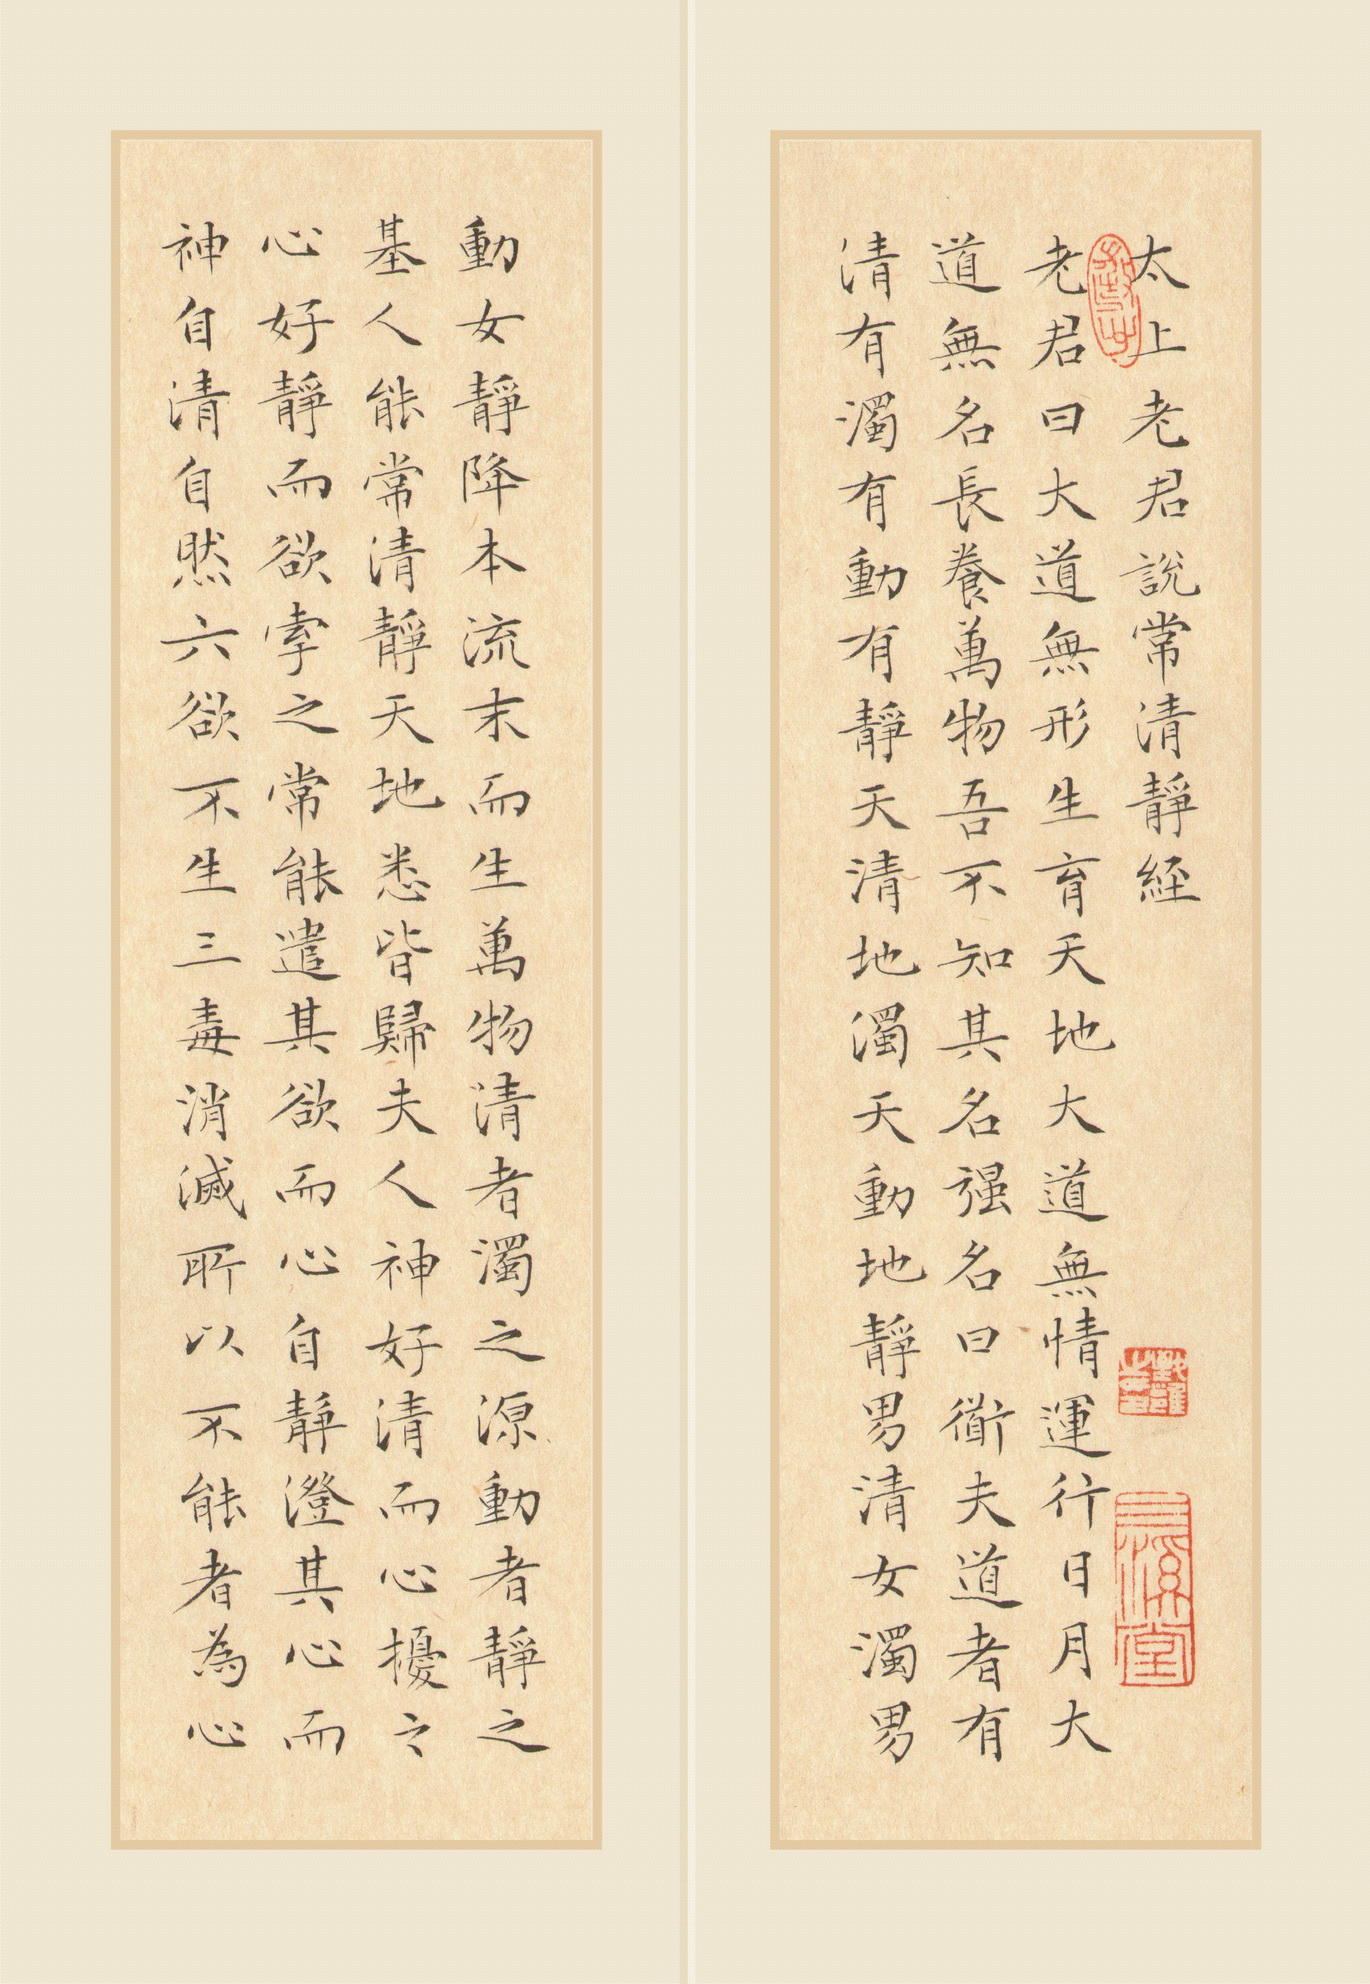 太上老君說常清靜經
三溪堂
老君曰大道無形生育天地大道無情運行日月大
道無名長養萬物吾不知其名强名曰衜夫道者有
清有濁有動有靜天清地濁天動地靜男清女濁男
動女靜降本流末而生萬物清者濁之源動者靜之
基人能常清靜天地悉皆歸夫人神好清而心擾之
心好靜而欲牽之常能遣其欲而心自靜澄其心而
神自清自然六欲不生三毒消滅所以不能者為心